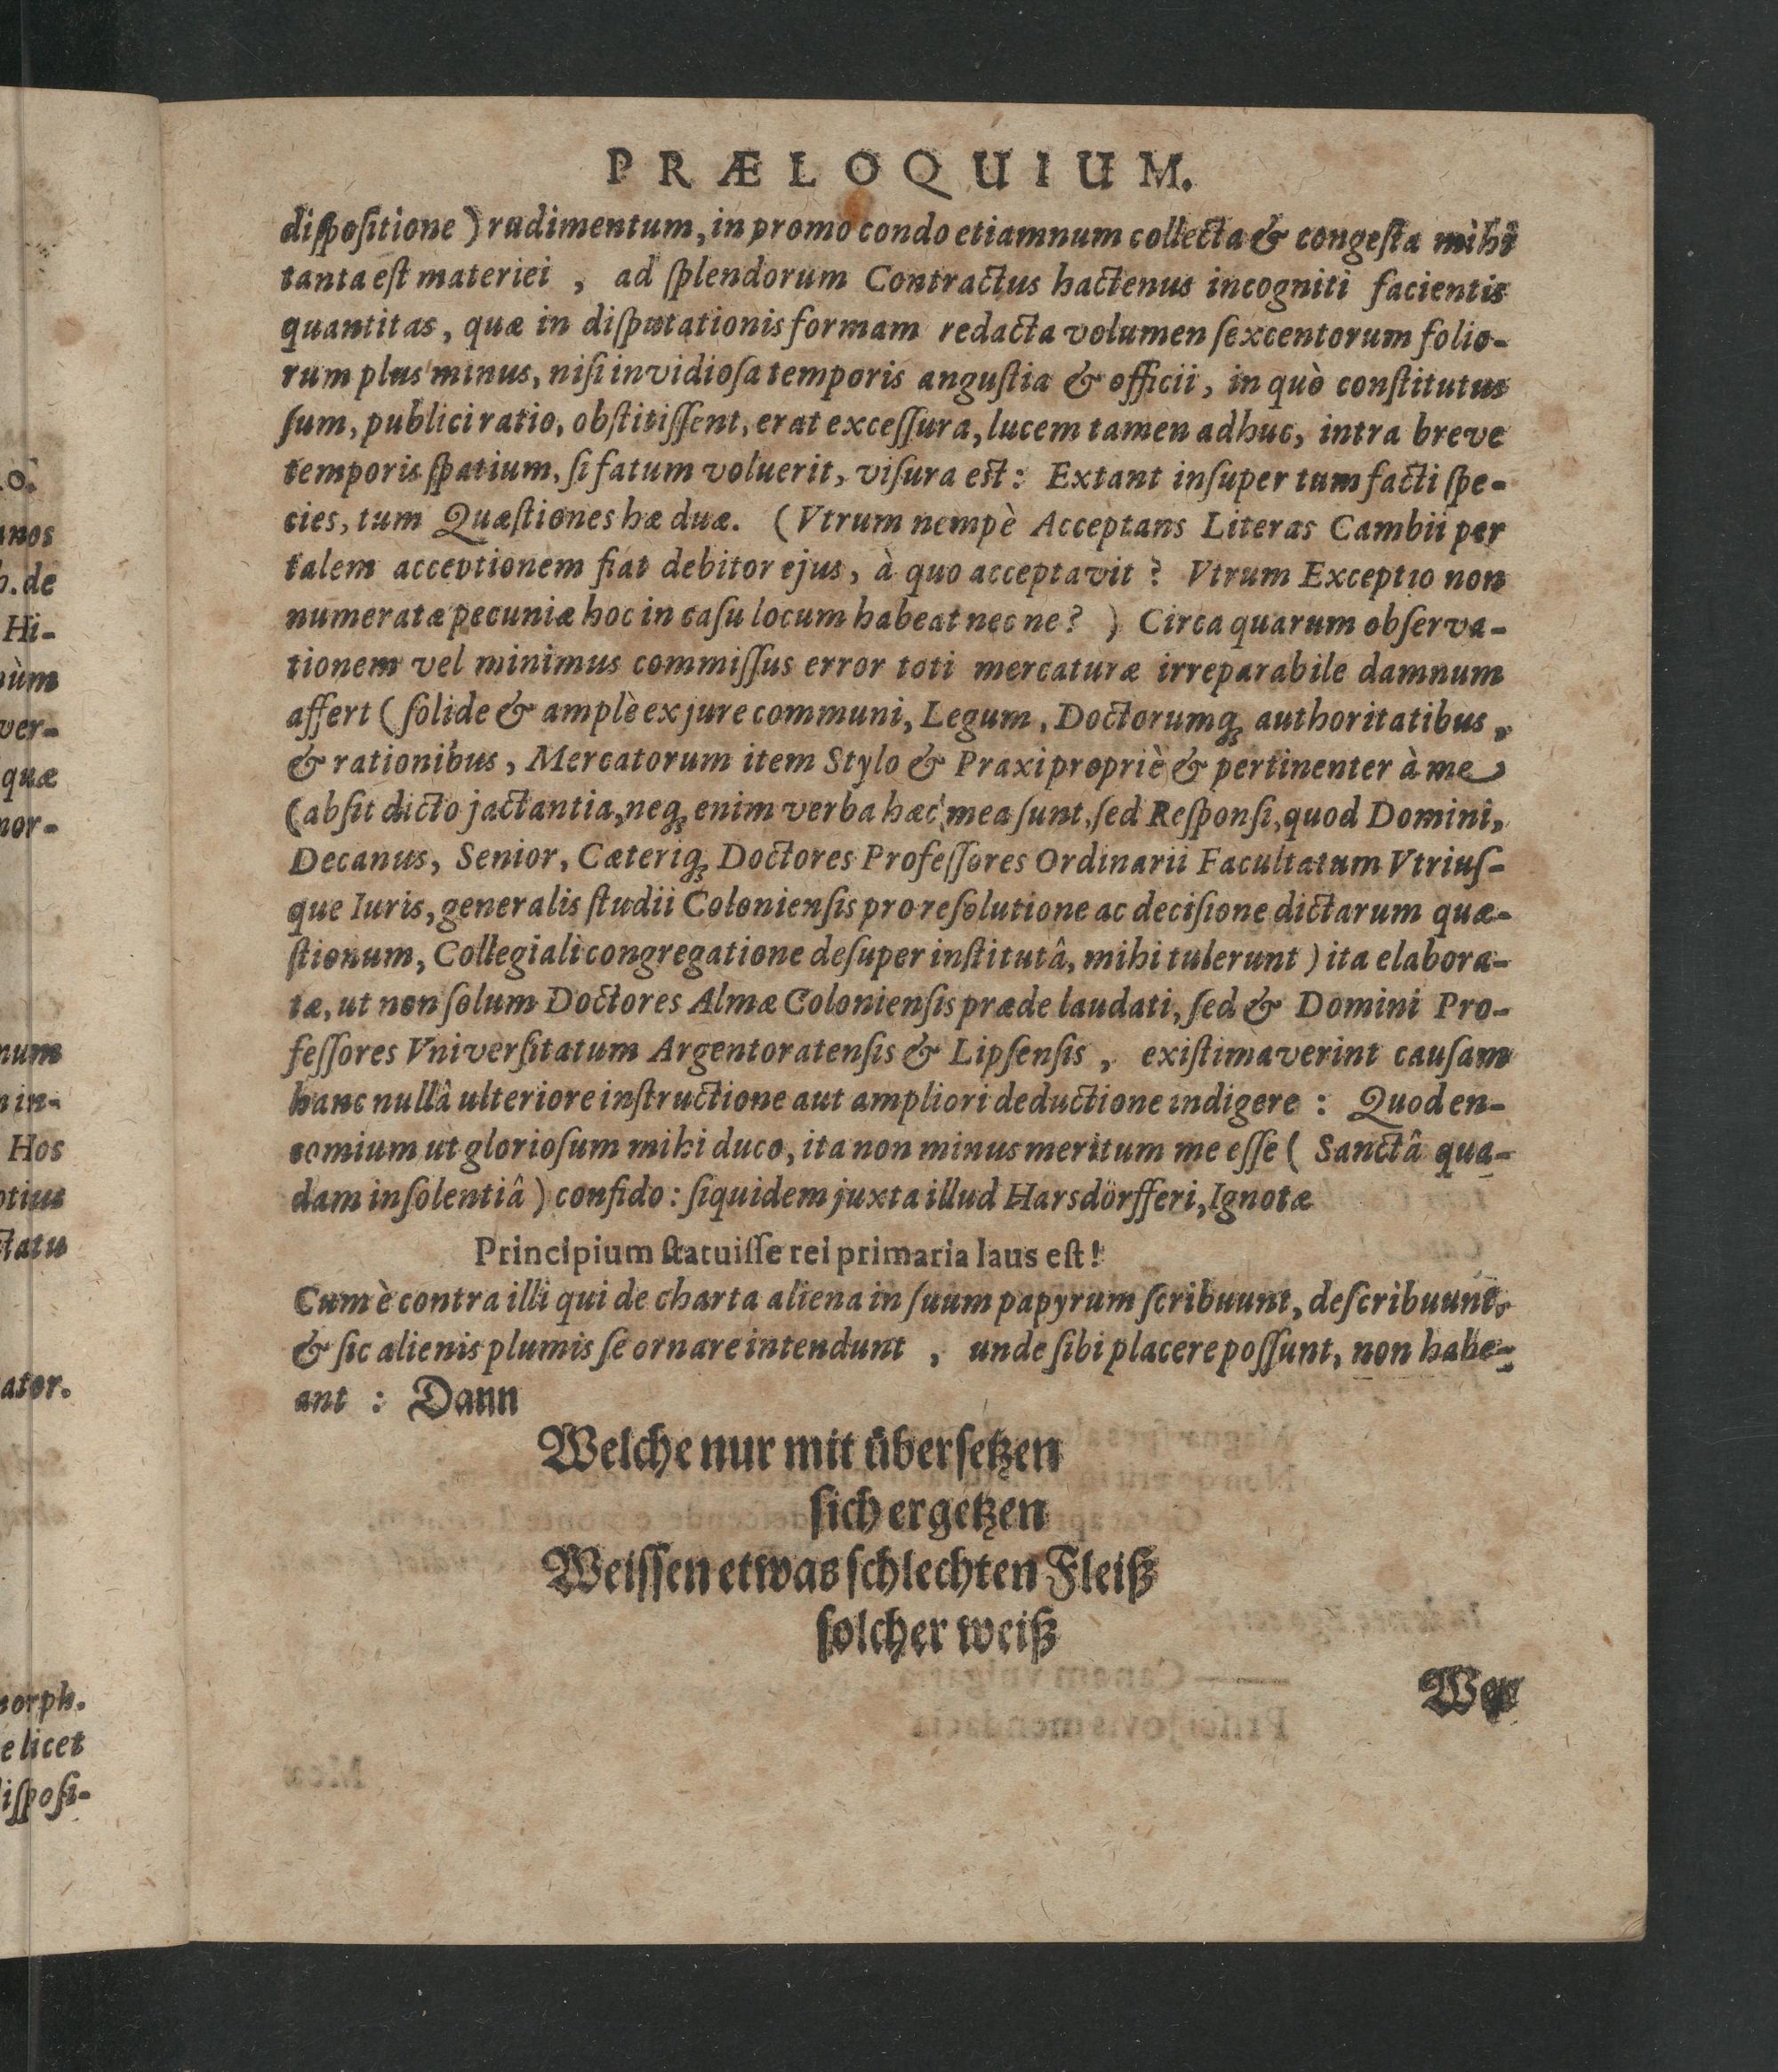 PRÆLOQUIUM.
diſpoſitione) rudimentum, in promo condo etiamnum collecta & congeſta mihi
tanta eſt materiei , ad ſplendorum Contractus hactenus incogniti facientis
quantitas, quæ in diſputationis formam redacta volumen ſexcentorum folio-
rum plus minus, niſi invidioſa temporis anguſtia & officii, in quò conſtitutus
ſum, publici ratio, obſtitiſſent, erat exceſſura, lucem tamen adhuc, intra breve
temporis ſpatium, ſi fatum voluerit, viſura eſt: Extant inſuper tum facti ſpe-
cies, tum Quæſtiones hæ duæ. (Vtrum nempè Acceptans Literas Cambii per
talem acceptionem fiat debitor ejus, à quo acceptavit? Vtrum Exceptio non
numeratæ pecuniæ hoc in caſu locum habeat nec ne? ) Circa quarum obſerva-
tionem vel minimus commiſſus error toti mercaturæ irreparabile damnum
affert (ſolide & amplè ex jure communi, Legum, Doctorumq; authoritatibus,
& rationibus, Mercatorum item Stylo & Praxi propriè & pertinenter à me
(abſit dicto jactantia, neq; enim verba hæc mea ſunt, ſed Reſponſi, quod Domini,
Decanus, Senior, Cæteriq; Doctores Profeſſores Ordinarii Facultatum Vtriuſ-
que Iuris, generalis ſtudii Colonienſis pro reſolutione ac deciſione dictarum quæ-
ſtionum, Collegiali congregatione deſuper inſtitutâ, mihi tulerunt) ita elabora-
tæ, ut non ſolum Doctores Almæ Colonienſis præde laudati, ſed & Domini Pro-
feſſores Vniverſitatum Argentoratenſis & Lipſenſis, exiſtimaverint cauſam
hanc nullâ ulteriore inſtructione aut ampliori deductione indigere : Quod en-
comium ut glorioſum mihi duco, ita non minus meritum me eſſe ( Sanctâ qua-
dam inſolentiâ) confido: ſiquidem juxta illud Harsdörfferi, Ignotæ
Principium ſtatuiſſe rei primaria laus eſt!
Cum è contra illi qui de charta aliena in ſuum papyrum ſcribuunt, deſcribuunt,
& ſic alienis plumis ſe ornare intendunt , unde ſibi placere poſſunt, non habe-
ant : Dann
Welche nur mit überſetzen
ſich ergetzen
Weiſſen etwas ſchlechten Fleiß
ſolcher weiß
Wer